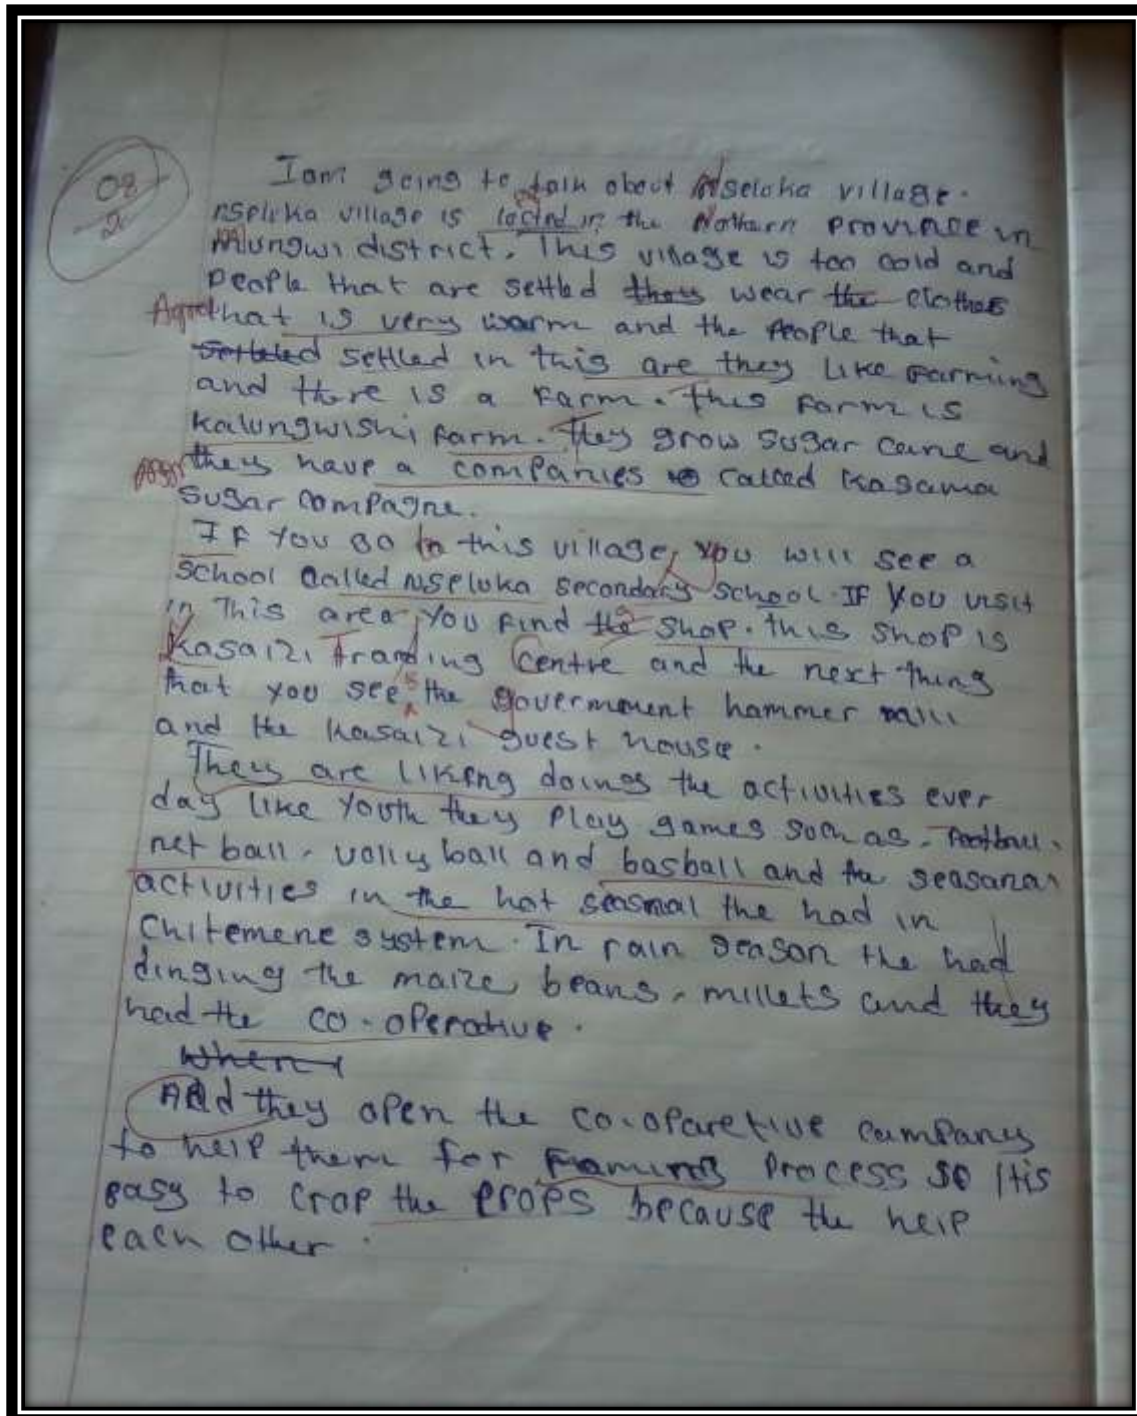 08
2
I am going to talk about Nseluka village.
nseluka village is locted in the Nothern province in
Mungwi district. This village is too cold and
people that are settled they wear the clothes
Agr that is very warm and the people that
settled in this are they like farming
and there is a farm. this farm is
kalungwishi farm. They grow sugar cane and
they have a companies called kasama
sugar compagne.
If you go in this village, you will see a
school called nseluka secondary school. If you visit
in This area you find the shop. this shop is
Kasaizi tranding Centre and the next thing
that you see is the government hammer mill
and the kasaizi guest house.
They are likeng doings the activities ever
day like Youth they play games such as, football,
net ball, volly ball and basball and the seasanar
activities in the hot seasnal the had in
Chitemene system. In rain season the had
dinging the maize, beans, millets and they
had the co-operative.
When
And they open the co-oparetive company
to help them for Framing process so itis
easy to crop the props because the help
each other.